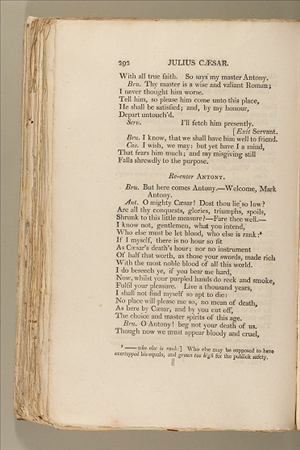 292 JULIUS CÆSAR.
With all true faith. So says my master Antony.
Bru. Thy master is a wise and valiant Roman;
I never thought him worse.
Tell him, so please him come unto this place,
He shall be satisfied; and, by my honour,
Depart untouch'd.
Serv. I'll fetch him presently.
[Exit Servant.
Bru. I know, that we shall have him well to friend.
Cas. I wish, we may: but yet have I a mind,
That fears him much; and my misgiving still
Falls shrewdly to the purpose.
Re-enter ANTONY.
Bru. But here comes Antony.—Welcome, Mark
Antony.
Ant. O mighty Cæsar! Dost thou lie so low?
Are all thy conquests, glories, triumphs, spoils,
Shrunk to this little measure?—Fare thee well.—
I know not, gentlemen, what you intend,
Who else must be let blood, who else is rank:
If I myself, there is no hour so fit
As Cæsar's death's hour; nor no instrument
Of half that worth, as those your swords, made rich
With the most noble blood of all this world.
I do beseech ye, if you bear me hard,
Now, whilst your purpled hands do reek and smoke,
Fulfil your pleasure. Live a thousand years,
I shall not find myself so apt to die:
No place will please me so, no mean of death,
As here by Cæsar, and by you cut off,
The choice and master spirits of this age.
Bru. O Antony! beg not your death of us.
Though now we must appear bloody and cruel,
—— who else is rank:] Who else may be supposed to have
overtopped his equals, and grown too high for the publick safety.